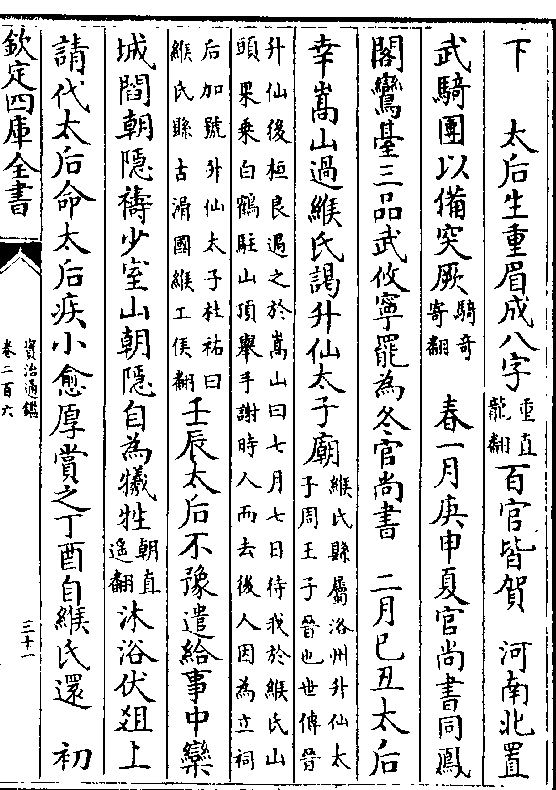 下　太后生重眉成八字重直龍翻百官皆賀　河南北置
武騎團以備突厥騎奇寄翻　春一月庚申夏官尚書同鳳
閣鸞臺三品武攸寧罷為冬官尚書　二月已丑太后
幸嵩山過緱氏謁升仙太子廟緱氏縣屬洛州升仙太子周王子晉也世傳晉
升仙後桓良遇之於嵩山曰七月七日待我於緱氏山頭果乘白鶴駐山頂舉手謝時人而去後人因為立祠
后加號升仙太子杜祐曰緱氏縣古滑國緱工侯翻壬辰太后不豫遣給事中欒
城閻朝隱禱少室山朝隱自為犧牲朝直遥翻沐浴伏俎上
請代太后命太后疾小愈厚賞之丁酉自緱氏還　初
欽定四庫全書
資治通鑑
卷二百六
三十一